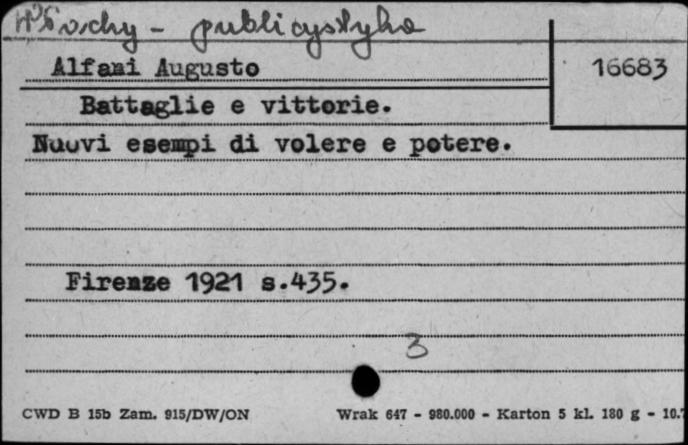 Włochy - publicystyka
Alfani Augusto
16683
Battaglie e vittorie.
Nuovi esempi di volere e potere.
Firenze 1921 s.435.
3
CWD B 15b Zam. 915/DW/ON
Wrak 647 - 980.000 - Karton 5 kl. 180 g - 10.7